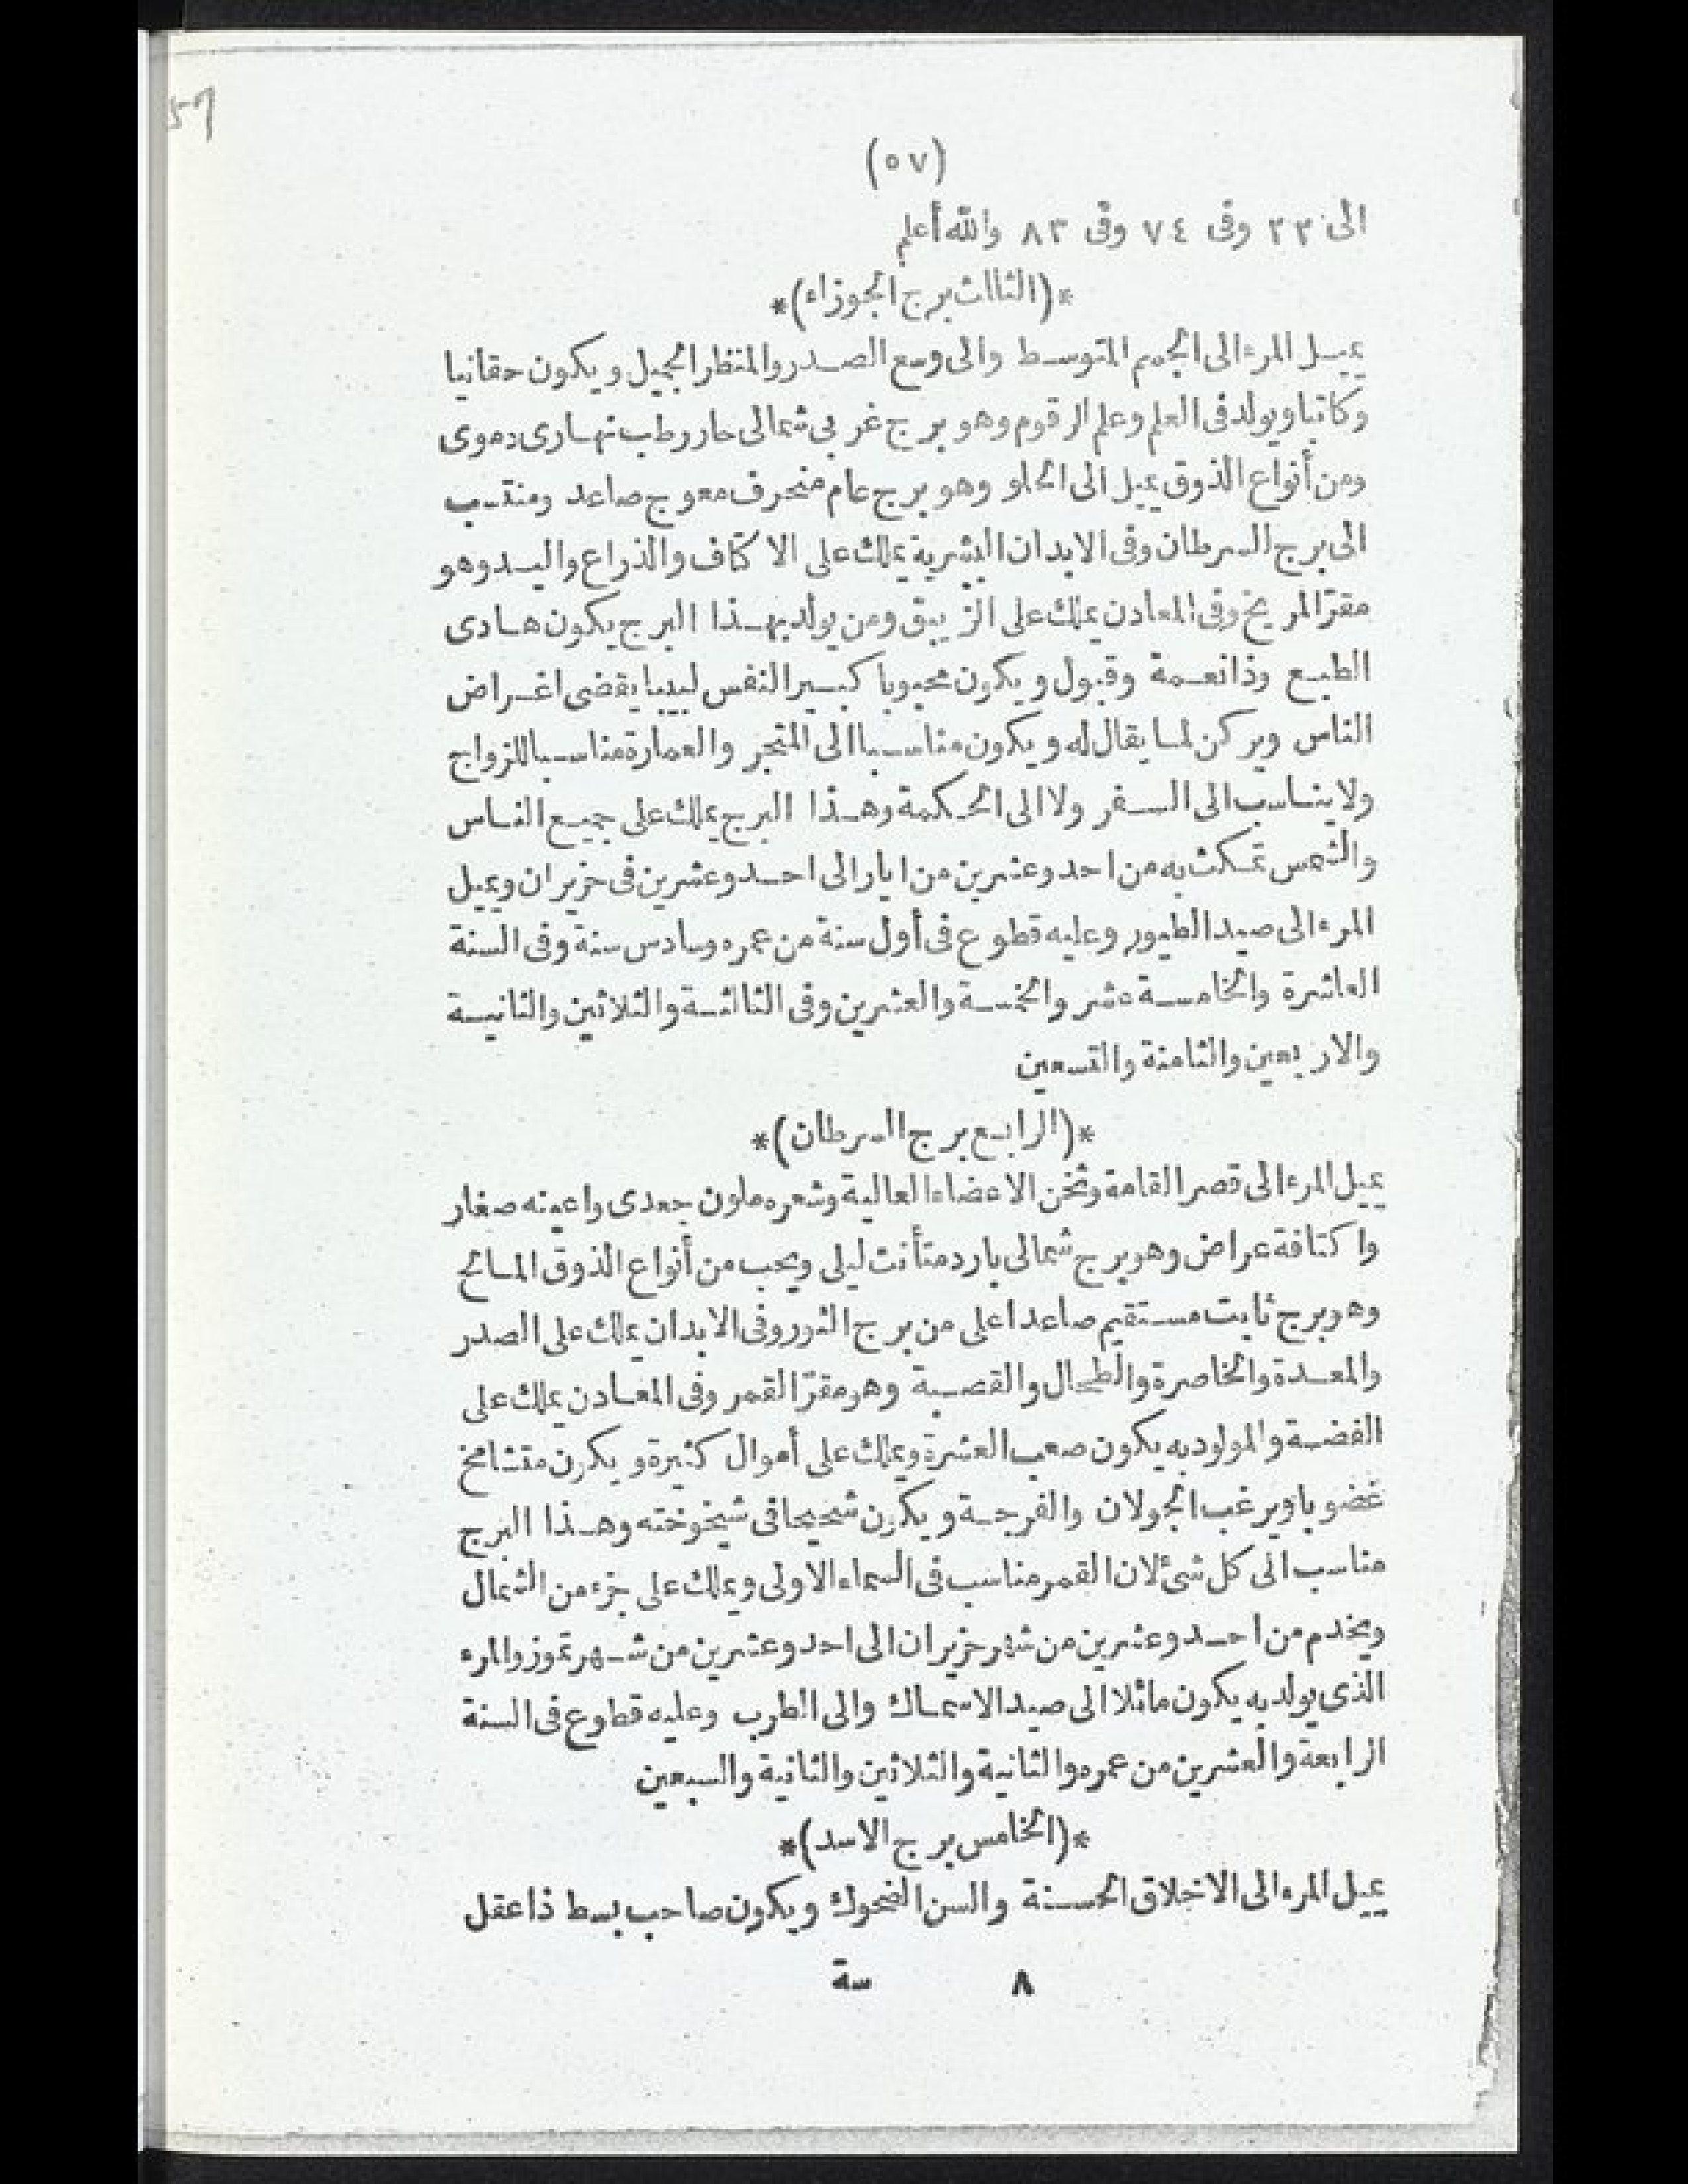 57
(٥٧)
الى ٣٣ وفى ٧٤ وفى ٨٣ والله أعلم
*(الثالث برج الجوزاء)*
يميل المرء الى الجسم المتوسط والى وسع الصدر والمنظر الجميل ويكون حقانيا
وكاتبا ويولد فى العلم وعلم الرقوم وهو برج غربى شمالى حار رطب نهارى دموى
ومن أنواع الذوق يميل الى الحلو وهو برج عام منحرف معوج صاعد ومنتسب
الى برج السرطان وفى الابدان البشرية يملك على الاكتاف والذراع واليد وهو
مقر المريخ وفى المعادن يملك على الزيبق ومن يولد بهذا البرج يكون هادى
الطبع وذا نعمة وقبول ويكون محبوبا كبير النفس لبيبا يقضى اغراض
الناس ويركن لما يقال له ويكون مناسبا الى المتجر والعمارة مناسبا للزواج
ولا يناسب الى السفر ولا الى الحكمة وهذا البرج يملك على جميع الناس
والشمس تمكث به من احد وعشرين من ايار الى احد وعشرين فى حزيران ويميل
المرء الى صيد الطيور وعليه قطوع فى أول سنة من عمره وسادس سنة وفى السنة
العاشرة والخامسة عشر والخمسة والعشرين وفى الثالثة والثلاثين والثانية
والاربعين والثامنة والتسعين
*(الرابع برج السرطان)*
يميل المرء الى قصر القامة وثخن الاعضاء العالية وشعره ملون جعدى واعينه صغار
واكتافة عراض وهو برج شمالى بارد متأنت ليلى ويحب من أنواع الذوق المالح
وهو برج ثابت مستقيم صاعد اعلى من برج الثور وفى الابدان يملك على الصدر
والمعدة والخاصرة والطحال والقصبة وهو مقر القمر وفى المعادن يملك على
الفضة والمولود به يكون صعب العشرة ويملك على أموال كثيرة ويكون متشامخ
غضوبا ويرغب الجولان والفرجة ويكون شحيحا فى شيخوخته وهذا البرج
مناسب الى كل شئ لان القمر مناسب فى السماء الاولى ويملك على جزء من الشمال
ويخدم من احد وعشرين من شهر حزيران الى احد وعشرين من شهر تموز والمرء
الذى يولد به يكون مائلا الى صيد الاسماك والى الطرب وعليه قطوع فى السنة
الرابعة والعشرين من عمره والثانية والثلاثين والثانية والسبعين
*(الخامس برج الاسد)*
يميل المرء الى الاخلاق الحسنة والسن الضحوك ويكون صاحب بسط ذا عقل
٨ سة